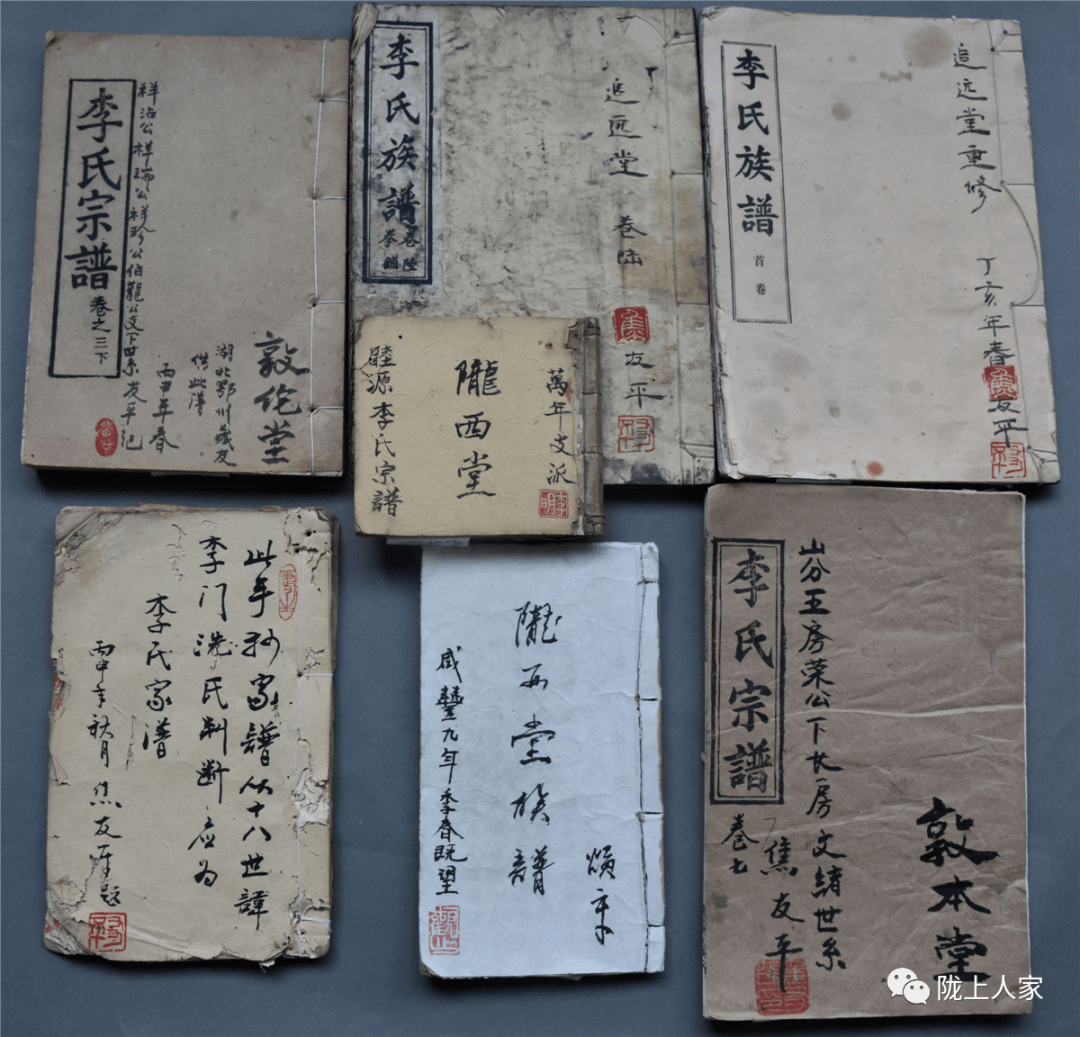 李氏宗譜
卷之三下
祥沾公祥瑞公祥珍公伯龍公文下世系友平记
敦伦堂
湖北鄂州戚友
供此谱
丙申年春
李氏族譜
卷陸
追远堂 卷陆
友平
李氏族譜
首卷
追远堂重修
丁亥年春
友平
萬年文派
隴西堂
睦源李氏宗譜
此手抄家譜从十八世諱
李门洗氏判断应为
李氏家谱
丙申年秋月焦友平题
隴西堂族譜
咸豐九年季春既望
李氏宗譜
卷七
山分五房荣公下长房文緒世系
焦友平
敦本堂
陇上人家